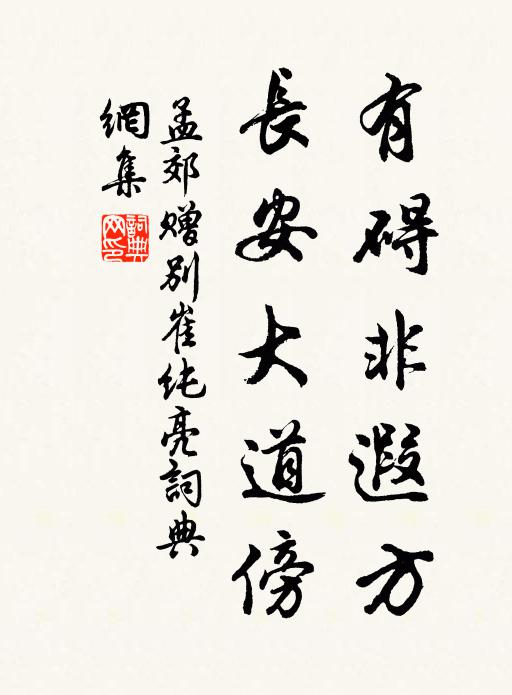 有碍非遐方
長安大道傍
孟郊赠別崔纯亮詞典
網集
詞典网印